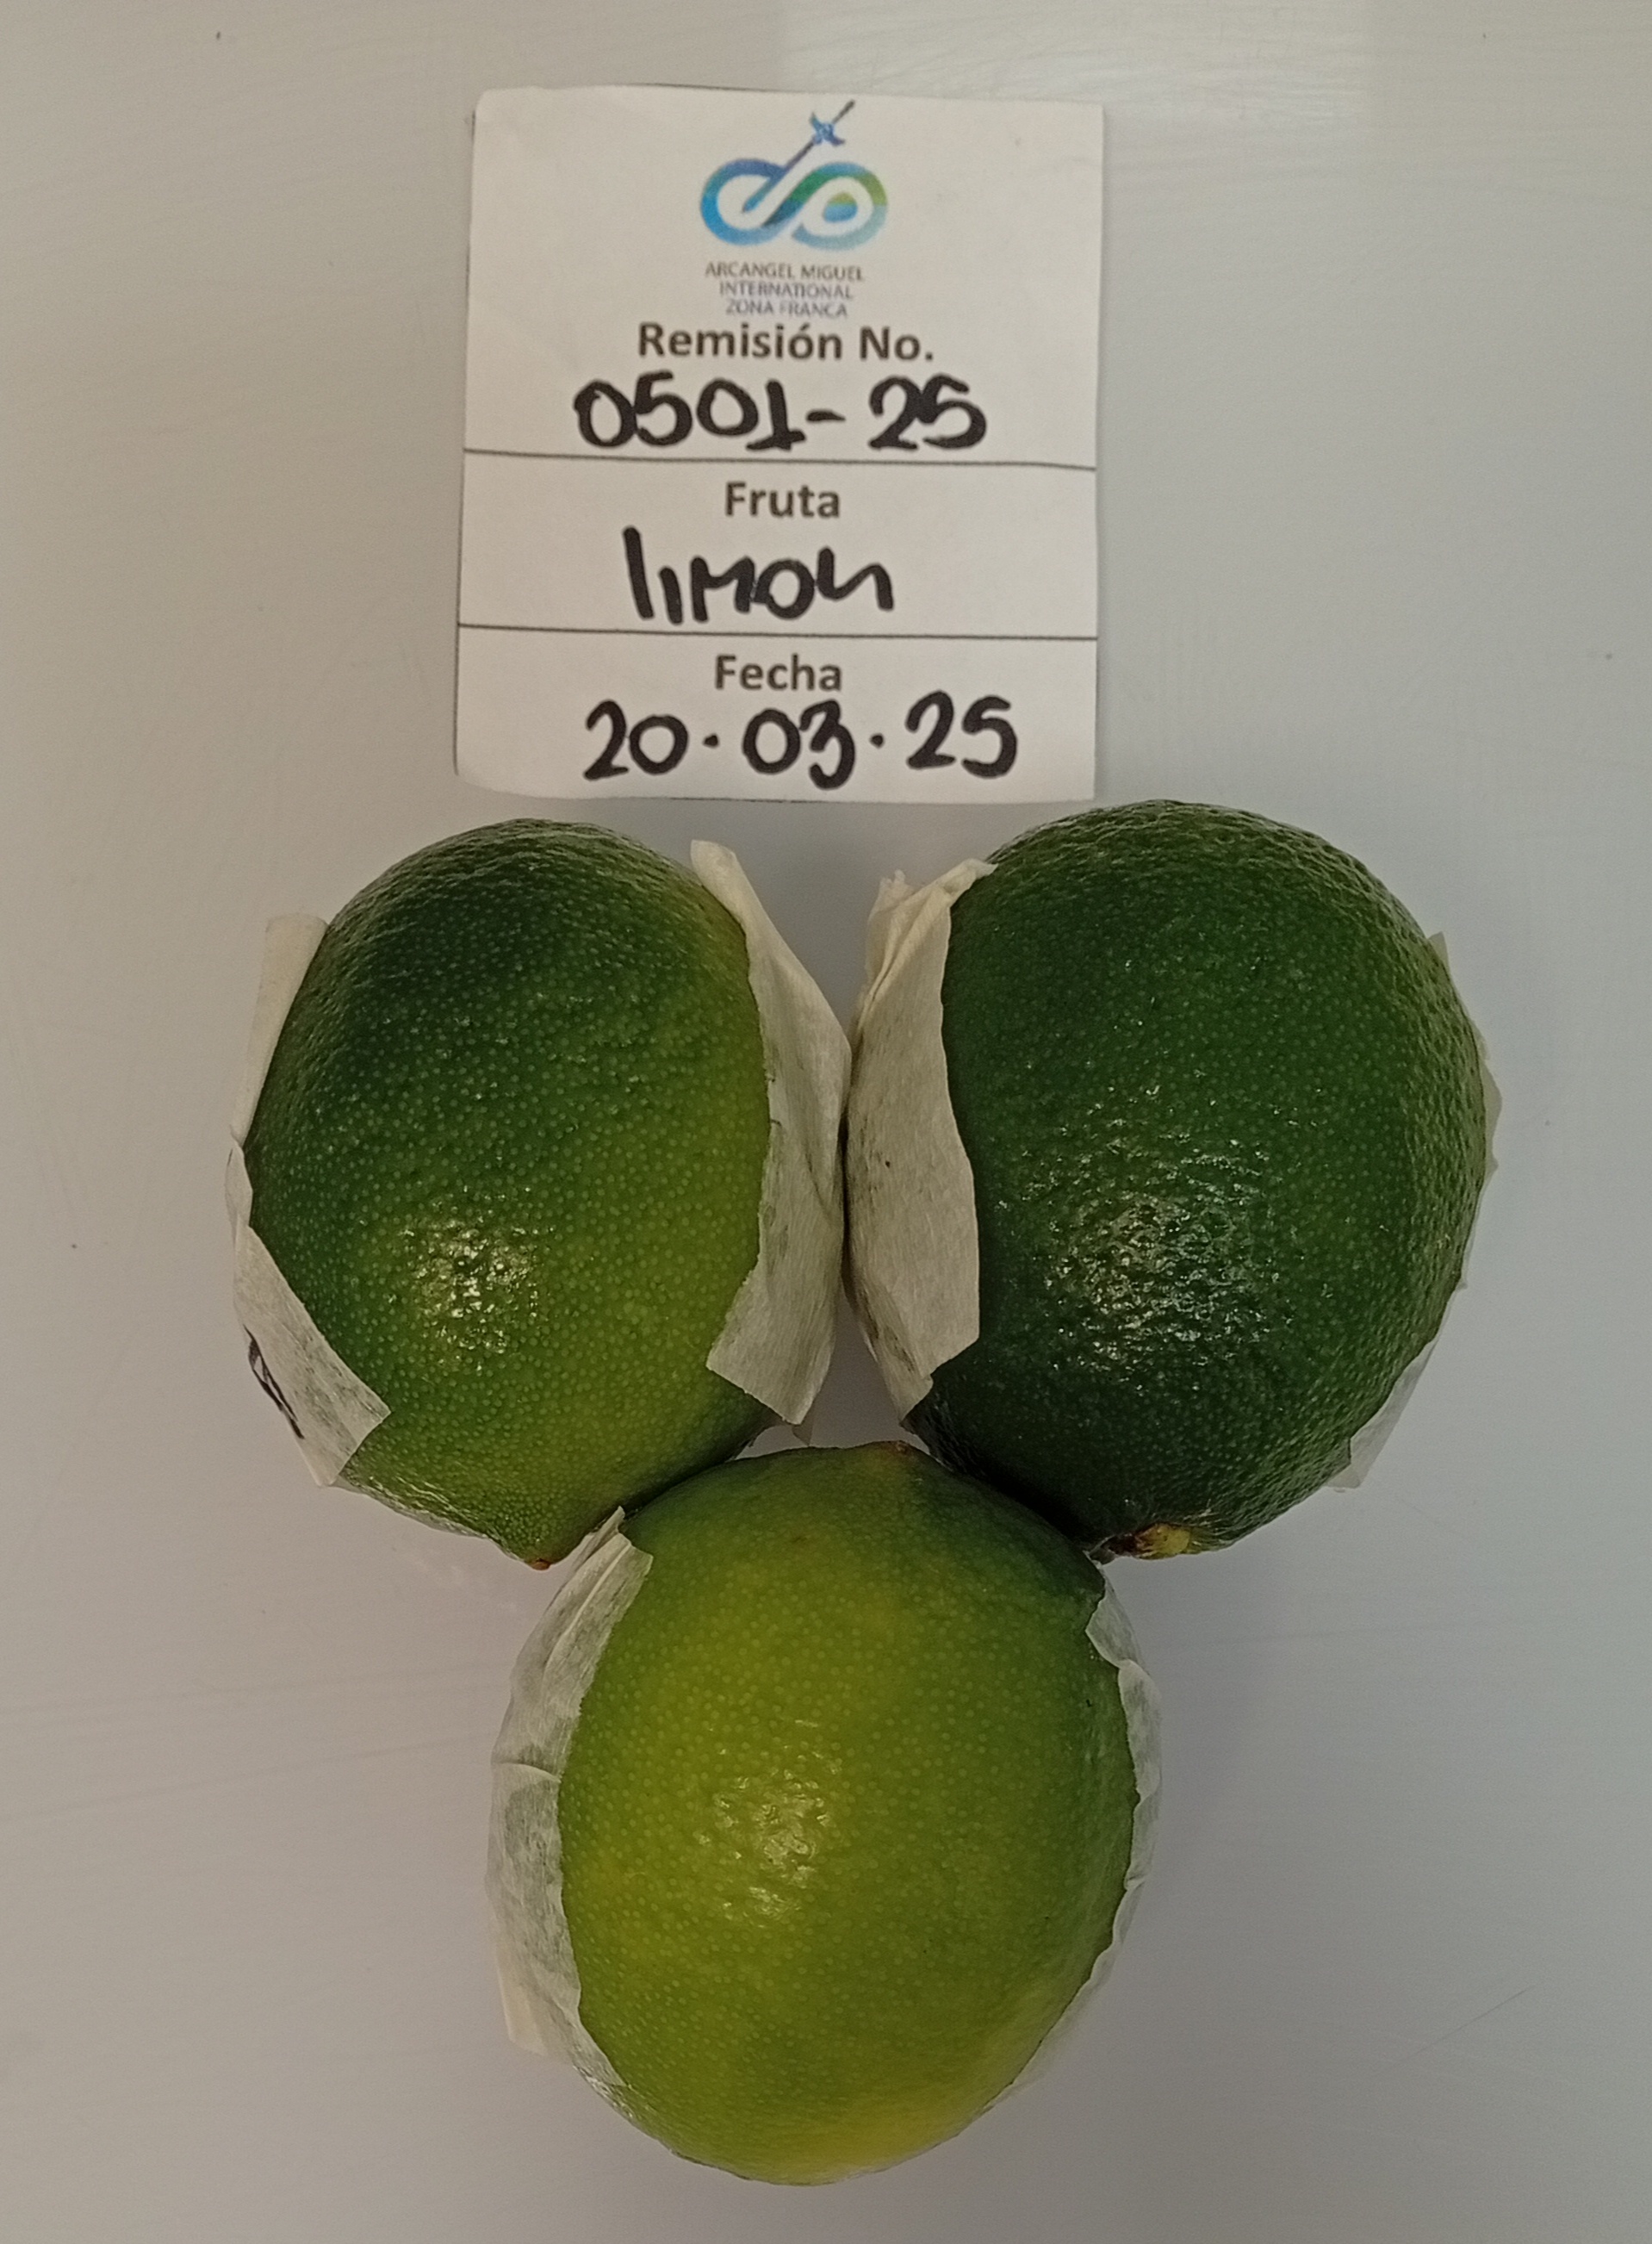 ARCANGEL MIGUEL
INTERNATIONAL
ZONA FRANCA
Remisión No.
0501-25
Fruta
limon
Fecha
20·03·25